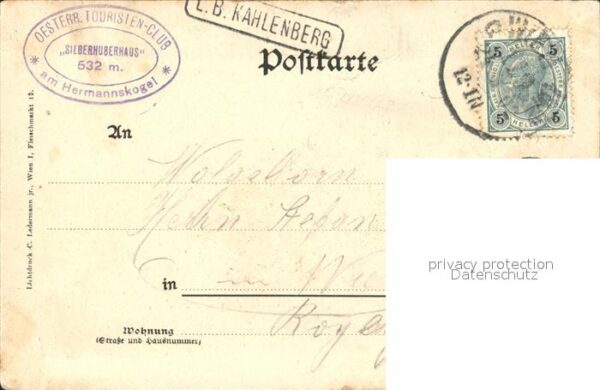 OESTERR. TOURISTEN-CLUB
"SILBERHUBERHAUS"
532 m.
am Hermannskogel
L.B. KAHLENBERG
Postkarte
5 5
5 5
HELLER
12·IV
An
Wolgeborn
Herrn Stefan
in
in Wie
Wohnung
(Straße und Hausnummer)
Lichtdruck C. Ledermann jr., Wien I, Fleischmarkt 12.
privacy protection
Datenschutz